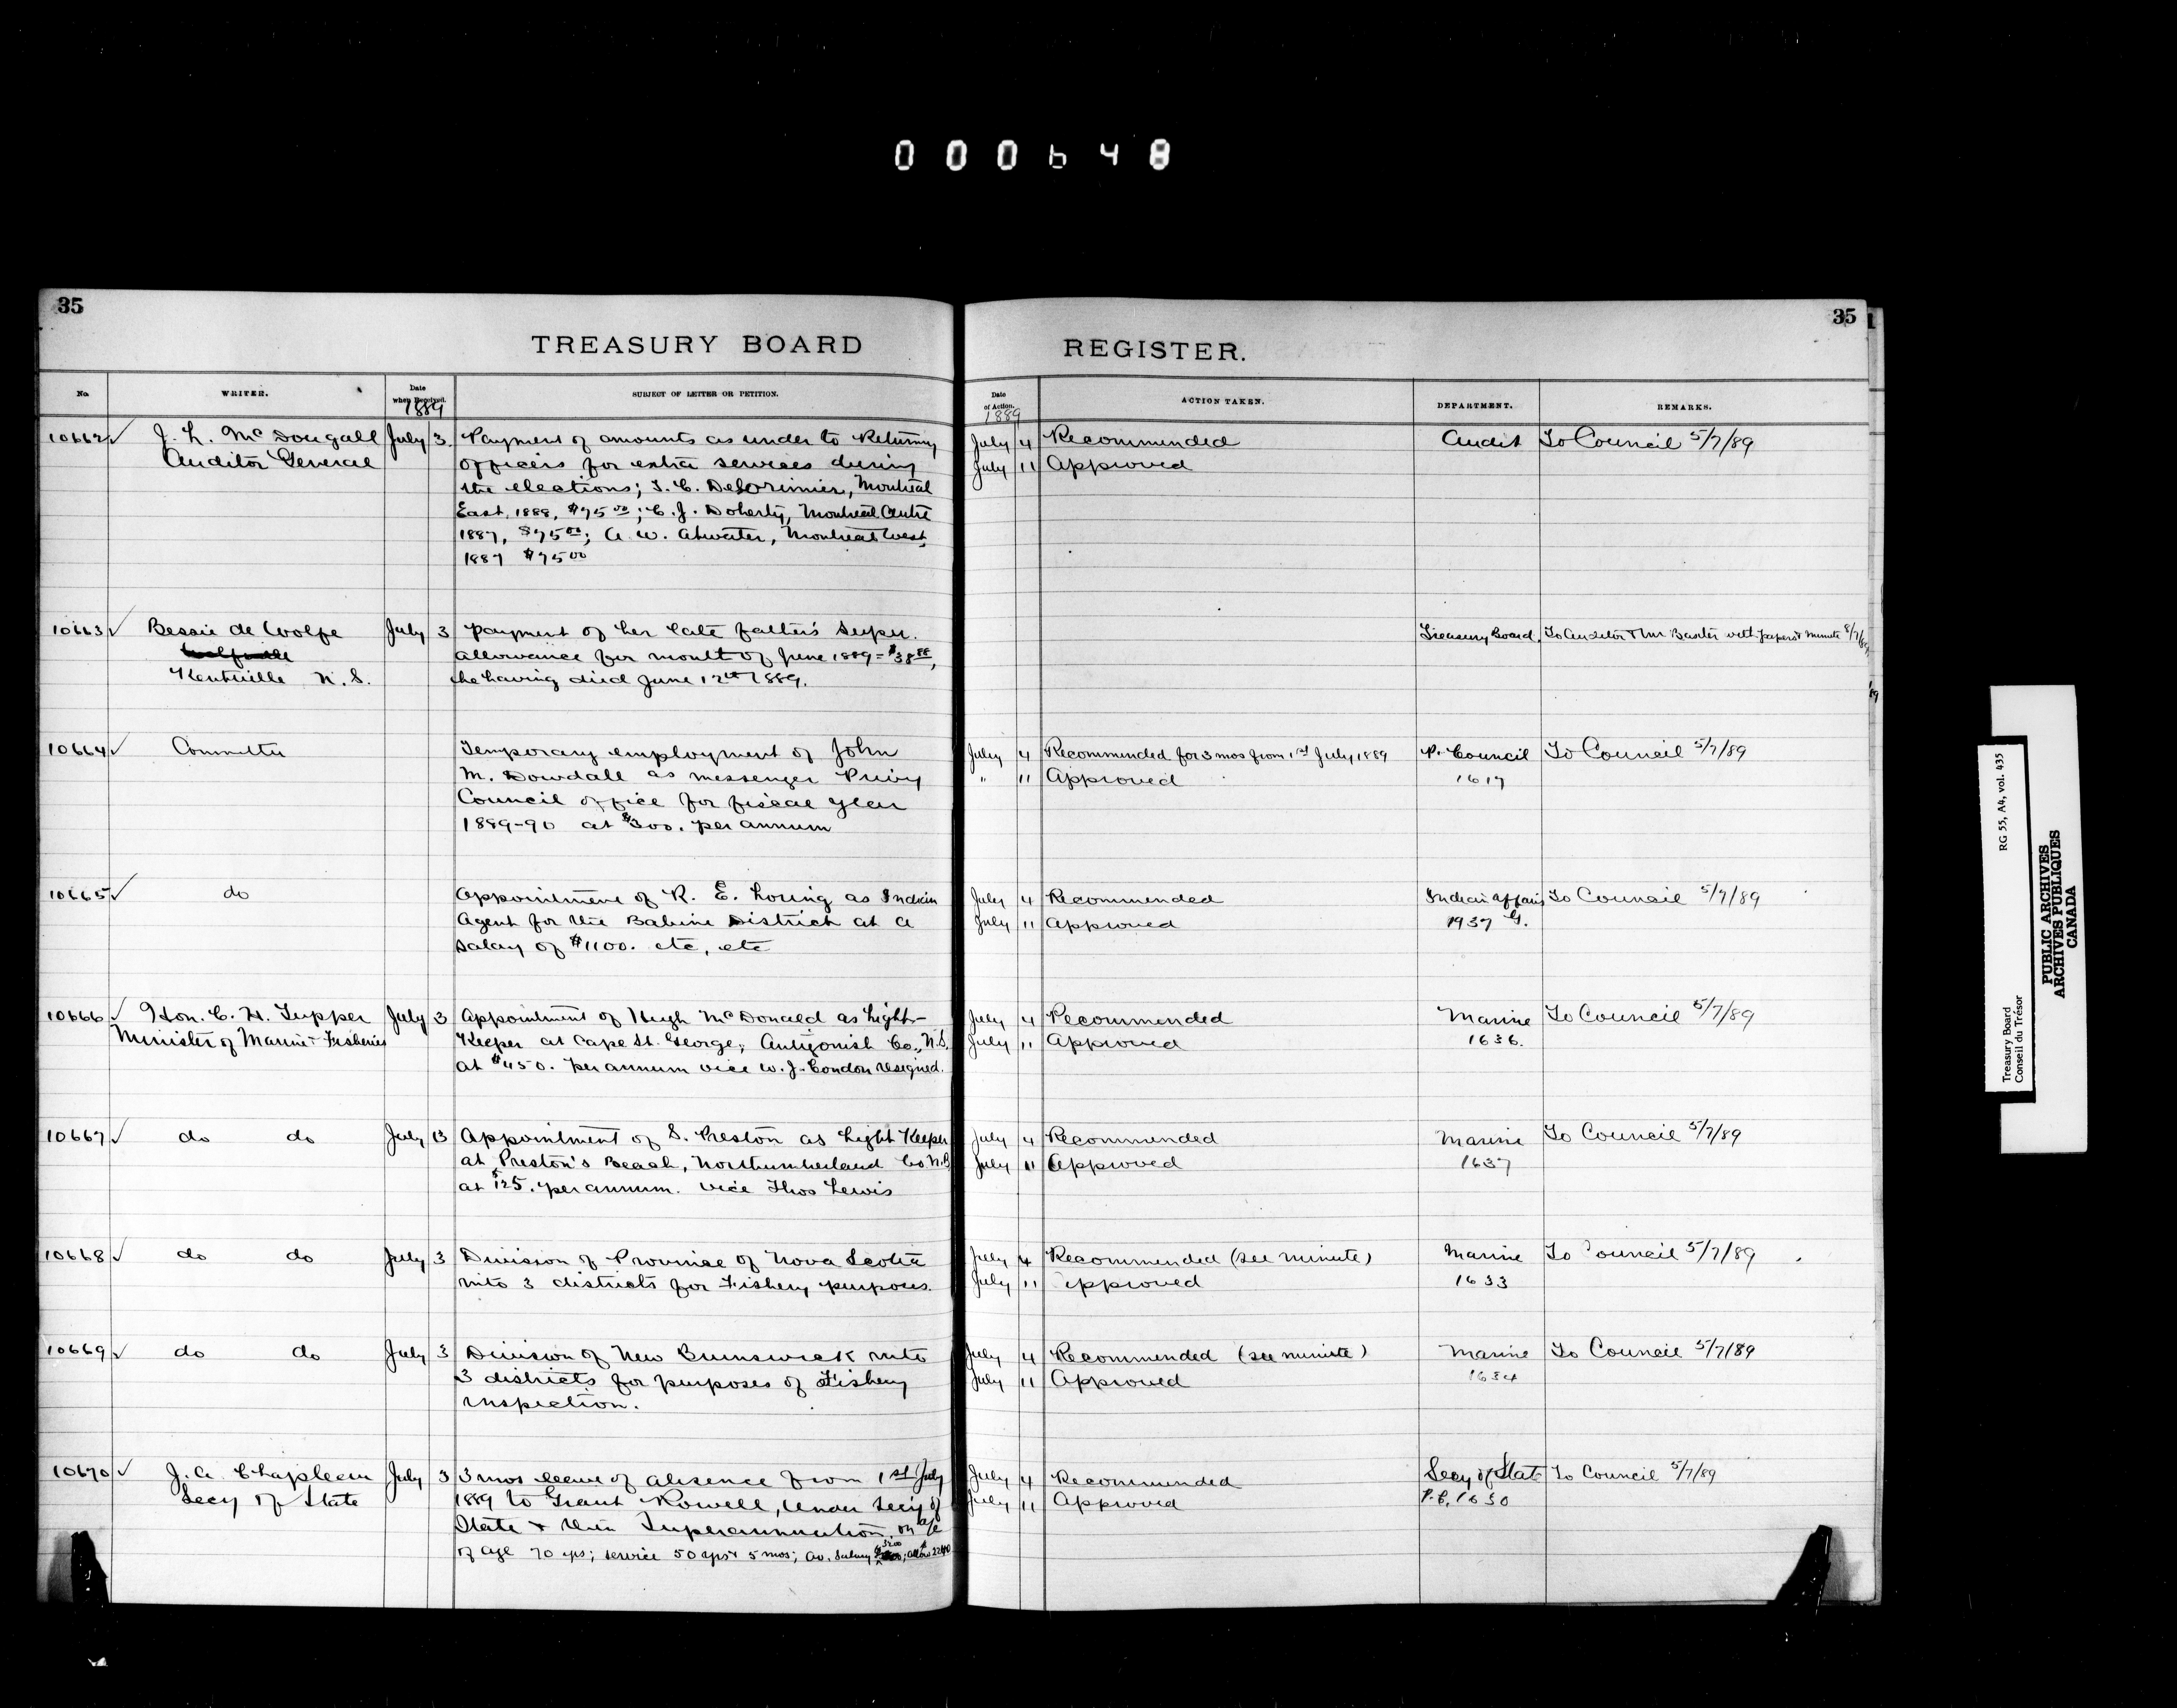 000648
35
35
TREASURY BOARD
REGISTER.
No.
WRITER.
Date when Received.
1889
SUBJECT OF LETTER OR PETITION.
Date of Action.
1889
ACTION TAKEN.
DEPARTMENT.
REMARKS.
10662 J. L. McDougall July 3 Payment of amounts as under to Returning
Auditor General officers for extra services during
the elections; T. C. DeLorimier, Montreal
East, 1888, $75 00; C. J. Doherty, Montreal Centre
1887, $75 00; A. W. Atwater, Montreal West,
1887 $75 00
July 4 Recommended Audit To Council 5/7/89
July 11 Approved
10663 Bessie de Wolfe July 3 Payment of her late father's super.
allowance for month of June 1889 = $38 88,
Kentville N.S. he having died June 12th 1889.
Treasury Board To Auditor & Mr Baxter with papers & minute 8/7/89
10664 Committee Temporary employment of John
M. Dowdall as messenger Privy
Council office for fiscal year
1889-90 at $300. per annum
July 4 Recommended for 3 mos from 1st July 1889 P. Council To Council 5/7/89
" 11 Approved 1617
10665 do Appointment of R. E. Loring as Indian
Agent for the Babine District at a
salary of $1100. etc, etc
July 4 Recommended Indian Affairs To Council 5/7/89
July 11 Approved 1937 G.
10666 Hon. C. H. Tupper July 3 Appointment of Hugh McDonald as Light-
Minister of Marine & Fisheries Keeper at Cape St. George, Antigonish Co., N.S.
at $450. per annum vice W. J. Condon resigned.
July 4 Recommended Marine To Council 5/7/89
July 11 Approved 1636.
10667 do do July 3 Appointment of S. Preston as Light Keeper
at Preston's Beach, Northumberland Co. N.B
at $125. per annum. vice Thos Lewis
July 4 Recommended Marine To Council 5/7/89
July 11 Approved 1637
10668 do do July 3 Division of Province of Nova Scotia
into 3 districts for Fishery purposes.
July 4 Recommended (see minute) Marine To Council 5/7/89
July 11 Approved 1633
10669 do do July 3 Division of New Brunswick into
3 districts for purposes of Fishery
inspection.
July 4 Recommended (see minute) Marine To Council 5/7/89
July 11 Approved 1634
10670 J. A. Chapleau July 3 3 mos leave of absence from 1st July
Secy of State 1889 to Grant Powell, Under Secy of
State & then Superannuation, on a/c
of age 70 yrs; service 50 yrs & 5 mos; av. salary 3200; allow 2240
July 4 Recommended Secy of State To Council 5/7/89
July 11 Approved P.C. 1630
Treasury Board RG 55, A4, vol. 435
Conseil du Trésor
PUBLIC ARCHIVES
ARCHIVES PUBLIQUES
CANADA